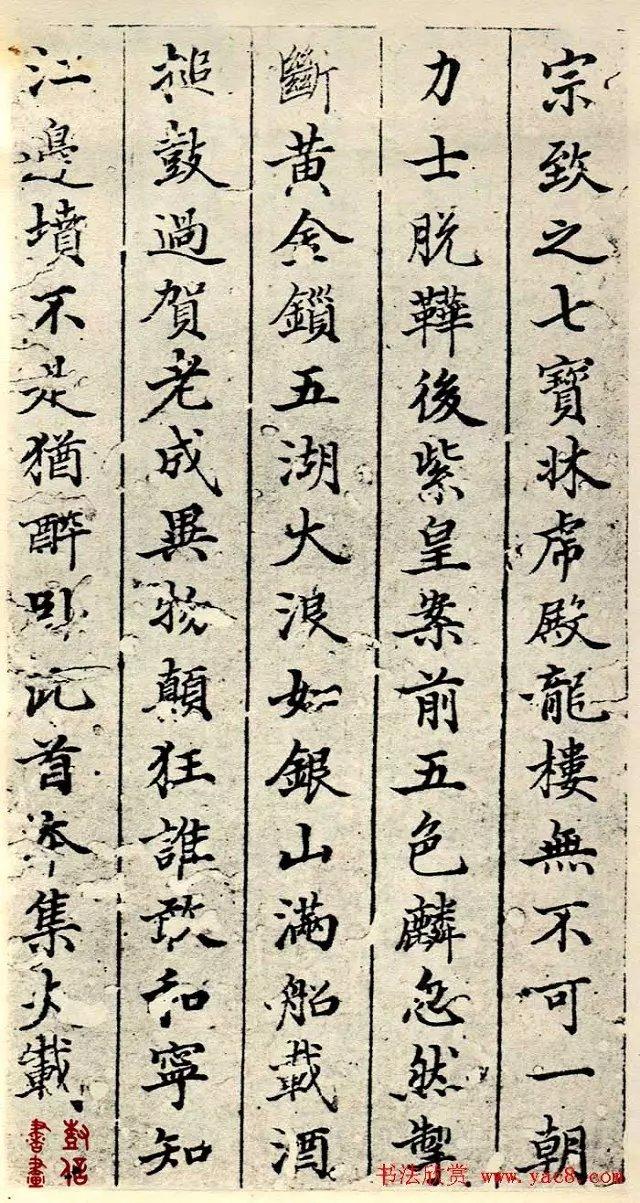 宗致之七寶牀虎殿龍樓無不可一朝
力士脫鞾後紫皇案前五色麟忽然掣
斷黃金鎖五湖大浪如銀山滿船載酒
搥鼓過賀老成異物顛狂誰敢和寧知
江邊墳不是猶醉臥此首本集失載
書畫
书法欣赏 www.yac8.com